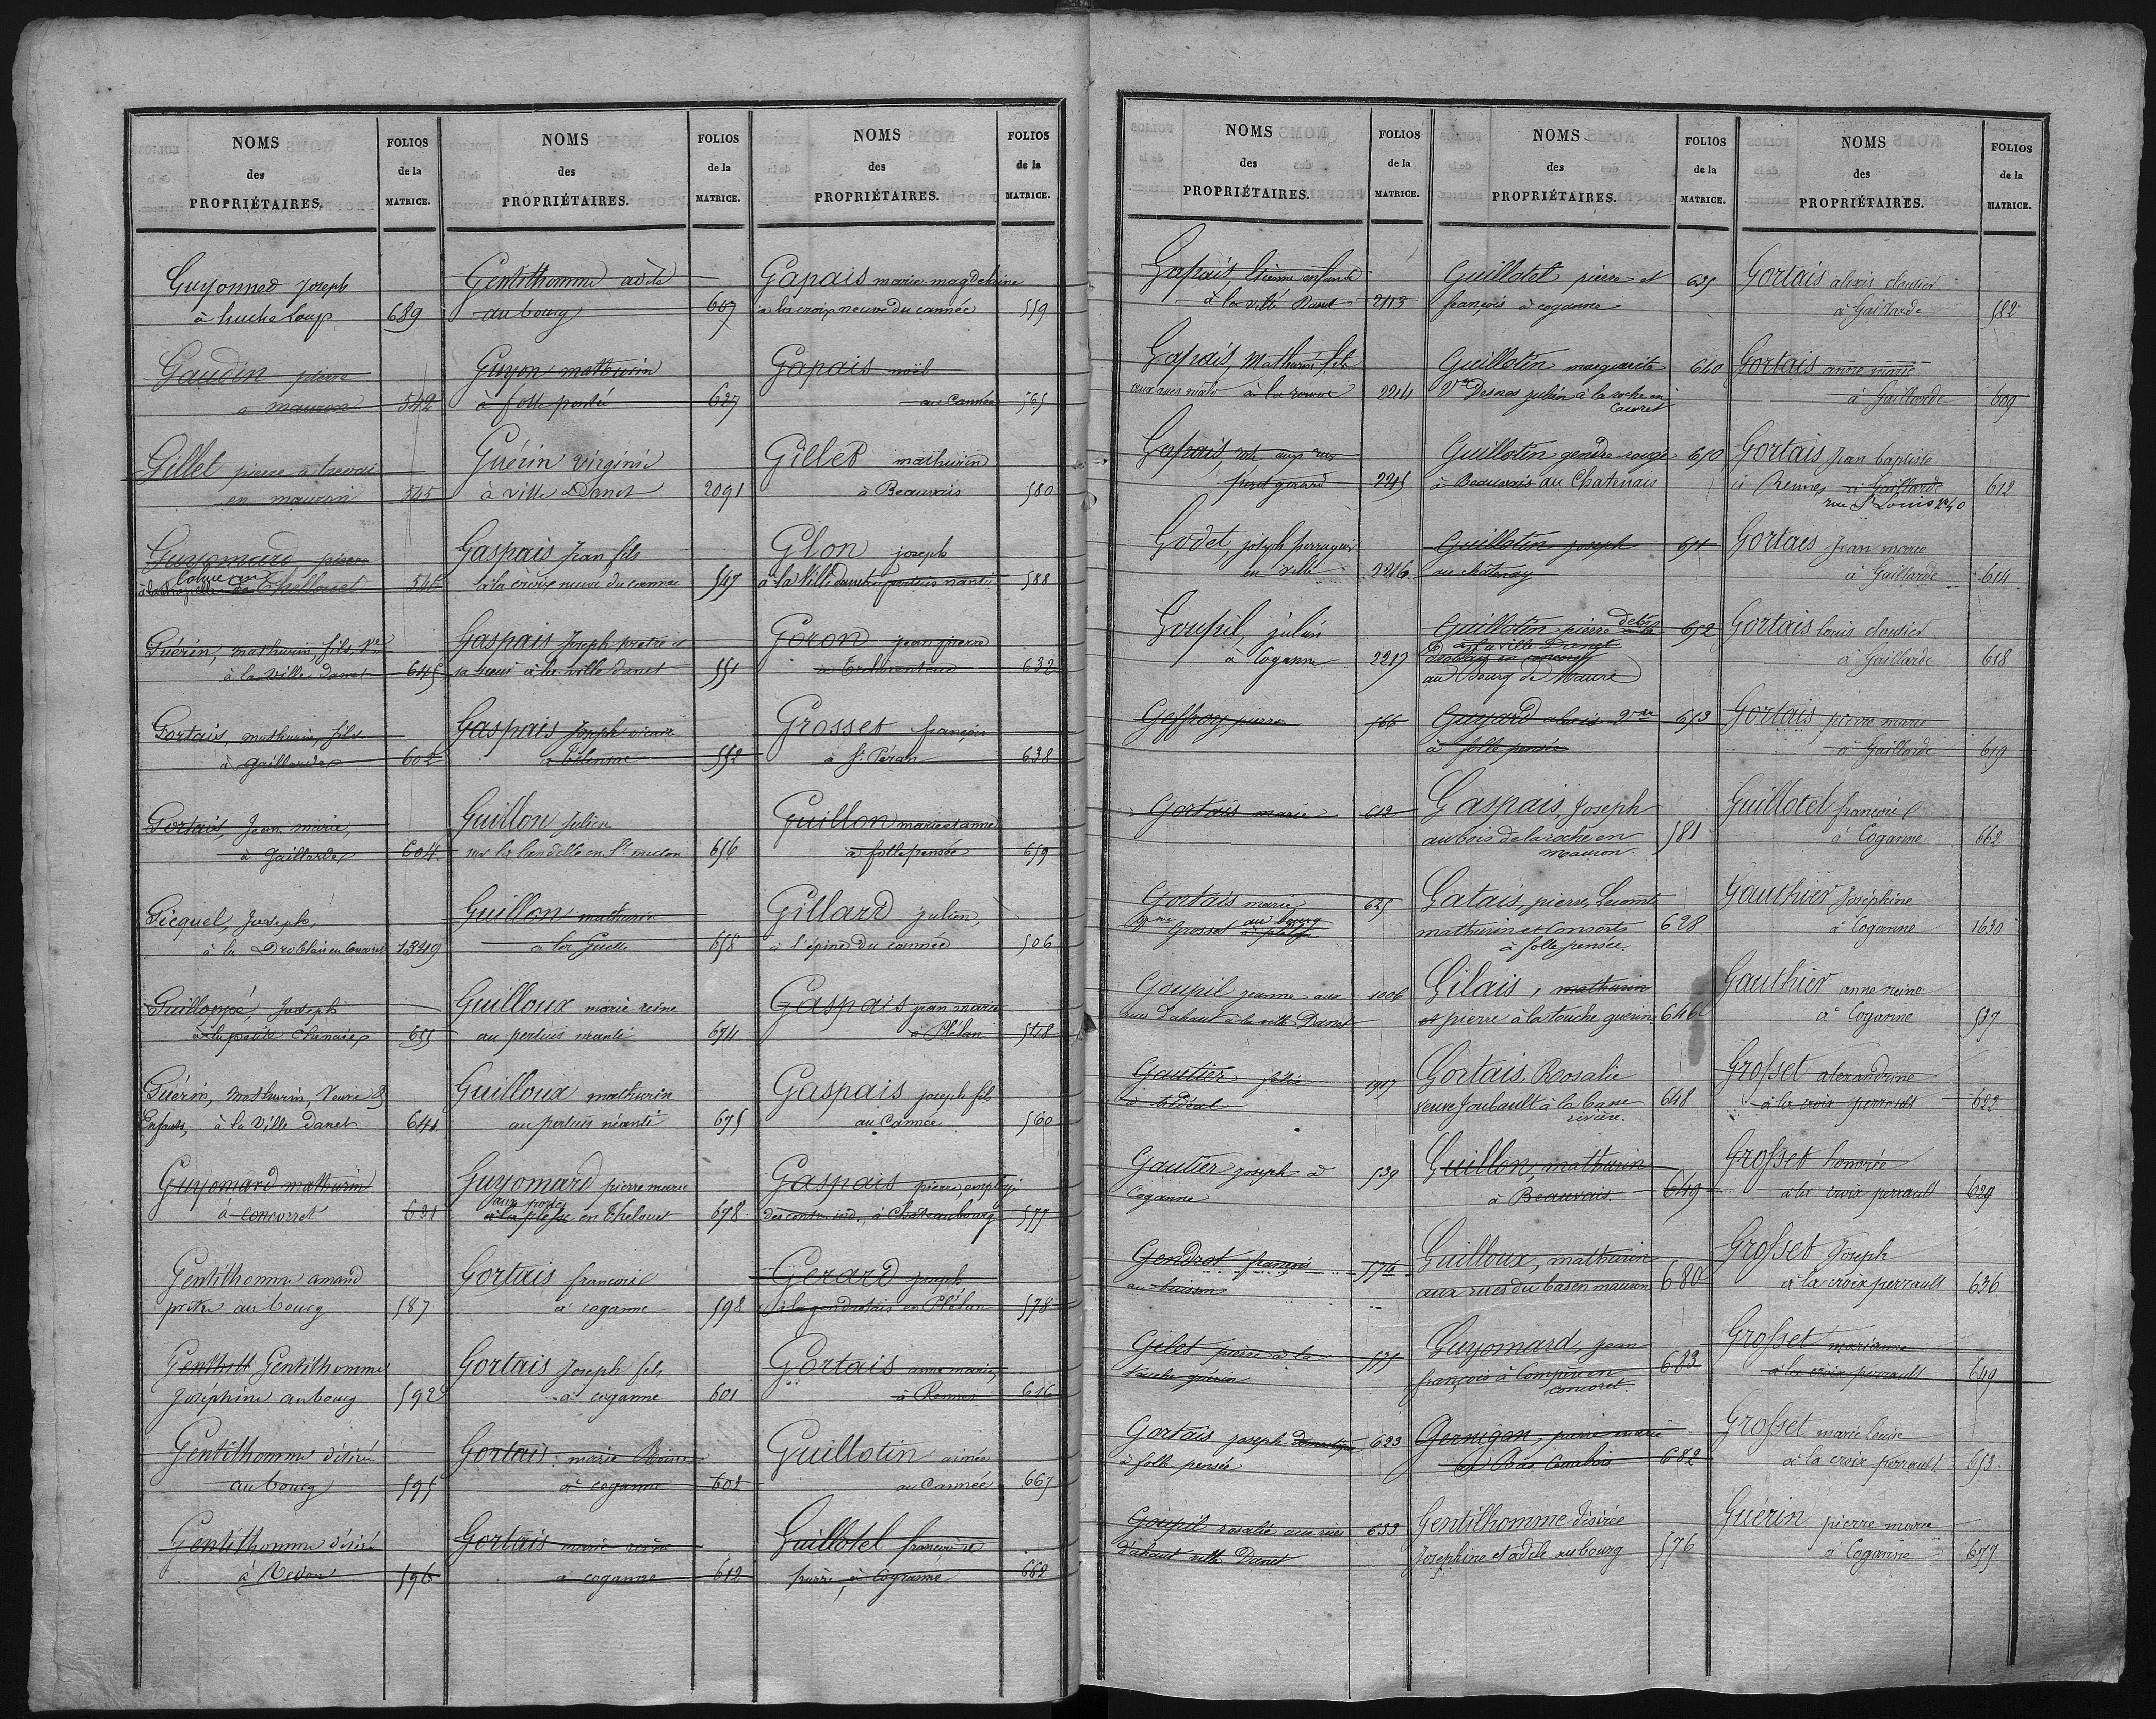 NOMS
des
PROPRIÉTAIRES.
FOLIOS
de la
MATRICE.
Guyonned Joseph
à huche Loup 689
Gaudin pierre
a mauron 542
Gillet pierre a trevoai
en mauron 545
Guyomard pierre
546
Guérin, mathurin, fils, Ve
à la ville danet 645
Gortais, mathurin, fils
à gaillarde 602
Gortais, Jean marie,
à Gaillarde 604
Gicquel, Joseph,
à la Droblais en Concoret 1349
Guillouxé, Joseph
à la petite Chenaie 655
Guérin, Mathurin, Veuve &
Enfants, à la Ville danet 641
Guyomard mathurin
a concorret 631
Gentilhomme amand
prêtre au bourg 587
Genthett Gentilhomme
Joséphine au bourg 592
Gentilhomme désiré
au bourg 595
Gentilhomme désiré
à Redon 596
NOMS
des
PROPRIÉTAIRES.
FOLIOS
de la
MATRICE.
Gentilhomme adèle
au bourg 607
Guyon mathurin
à folle pensée 627
Guérin Virginie
à ville Danet 2091
Gaspais Jean fils
à la croix neuve du cannée 547
Gaspais Joseph pretre et
sa soeur à la ville danet 551
Gaspais Joseph vicaire
552
Guillon Julien
sur la landelle en St malon 656
Guillon mathurin
a la Guette 658
Guilloux marie reine
au pertuis néanti 674
Guilloux mathurin
au pertuis néanti 675
Guyomard pierre marie
aux portes
à la plesse en thelouet 678
Gortais françois
à coganne 598
Gortais Joseph fils
à coganne 601
Gortais marie
à coganne 601
Gortais marie reine
a coganne 612
NOMS
des
PROPRIÉTAIRES.
FOLIOS
de la
MATRICE.
Gapais marie magdelaine
a la croix neuve du cannée 559
Gapais noël
au Cannée 565
Gillet mathurin
à Beauvais 580
Glon joseph
à la Ville danet pertuis nanti 588
Goron jean pierre
632
Grosset françois
à St. Péran 638
Guillon marie et anne
à folle pensée 659
Gillard julien,
à l'épine du cannée 506
Gaspais jean marie
à Plélan 548
Gaspais joseph fils
au Cannée 560
Gaspais pierre, employé
des contr. ind., à Chateaubourg 577
Gerard joseph
à la gendratais en Plélan 578
Gortais anne marie,
à Rennes 616
Guillotin aimée
au Cannée 667
Guillotel françois et
pierre, à Coganne 662
NOMS
des
PROPRIÉTAIRES.
FOLIOS
de la
MATRICE.
Gapais, Etienne enfants
à la ville Danet 2113
Gapais, Mathurin fils
aux rues malo 2214
Gapais, rose aux rues
piret gerard 2215
Godet, joseph perruquier
en ville 2216
Goupil, julien
à Coganne 2217
Geffroy pierre 566
Gortais marie 612
Gortais marie 625
Grosset au bourg
Goupil jeanne aux 1006
rues d'ahaut à la ville Danet
Gautier félix 1917
à trédéal
Gautier joseph à 539
Coganne
Gendrot françois 574
au buisson
Gilet pierre à la 535
touche guérin
Gortais joseph domestique 623
à folle pensée
Goupil rosalie aux rues 633
d'ahaut ville Danet
NOMS
des
PROPRIÉTAIRES.
FOLIOS
de la
MATRICE.
Guillotel pierre et 635
françois à coganne
Guillotin marguerite 640
Ve Desnos julien à la roche en
Concoret
Guillotin gendre rouge 650
à Beauvais au Chatenais
Guillotin joseph 651
au châtenay
Guillotin pierre 652
à la ville Danet
au Bourg de Maure
Guyard alexis 653
à folle pensée
Gaspais, Joseph
au bois de la roche en
mauron. 581
Gatais, pierre, Lecomte
mathurin et Consorts 628
à folle pensée.
Gilais, mathurin
et pierre à la touche guerin 646
Gortais, Rosalie
veuve Joubault à la basse 648
rivière.
Guillon, mathurin
à Beauvais 649
Guilloux, mathurin
aux rues du bas en mauron 680
Guyomard, jean
françois à Comper en 683
concoret.
Gernigon, pierre marie
682
Gentilhomme désirée
Josephine et adèle au bourg 576
NOMS
des
PROPRIÉTAIRES.
FOLIOS
de la
MATRICE.
Gortais alexis cloutier
à Gaillarde 582
Gortais anne marie
à Gaillarde 609
Gortais Jean baptiste
à Rennes à Gaillarde 612
rue St Louis no 40
Gortais Jean marie
à Gaillarde 614
Gortais louis cloutier
à Gaillarde 618
Gortais pierre marie
à Gaillarde 619
Guillotel françois
à Coganne 662
Gauthier Joséphine
à Coganne 1630
Gauthier anne reine
à Coganne 537
Grosset alexandrine
à la croix perrault 622
Grosset honorée
à la croix perrault 629
Grosset Joseph
à la croix perrault 636
Grosset marianne
à la croix perrault 649
Grosset marie louise
à la croix perrault 653
Guérin pierre marie
à Coganne 677